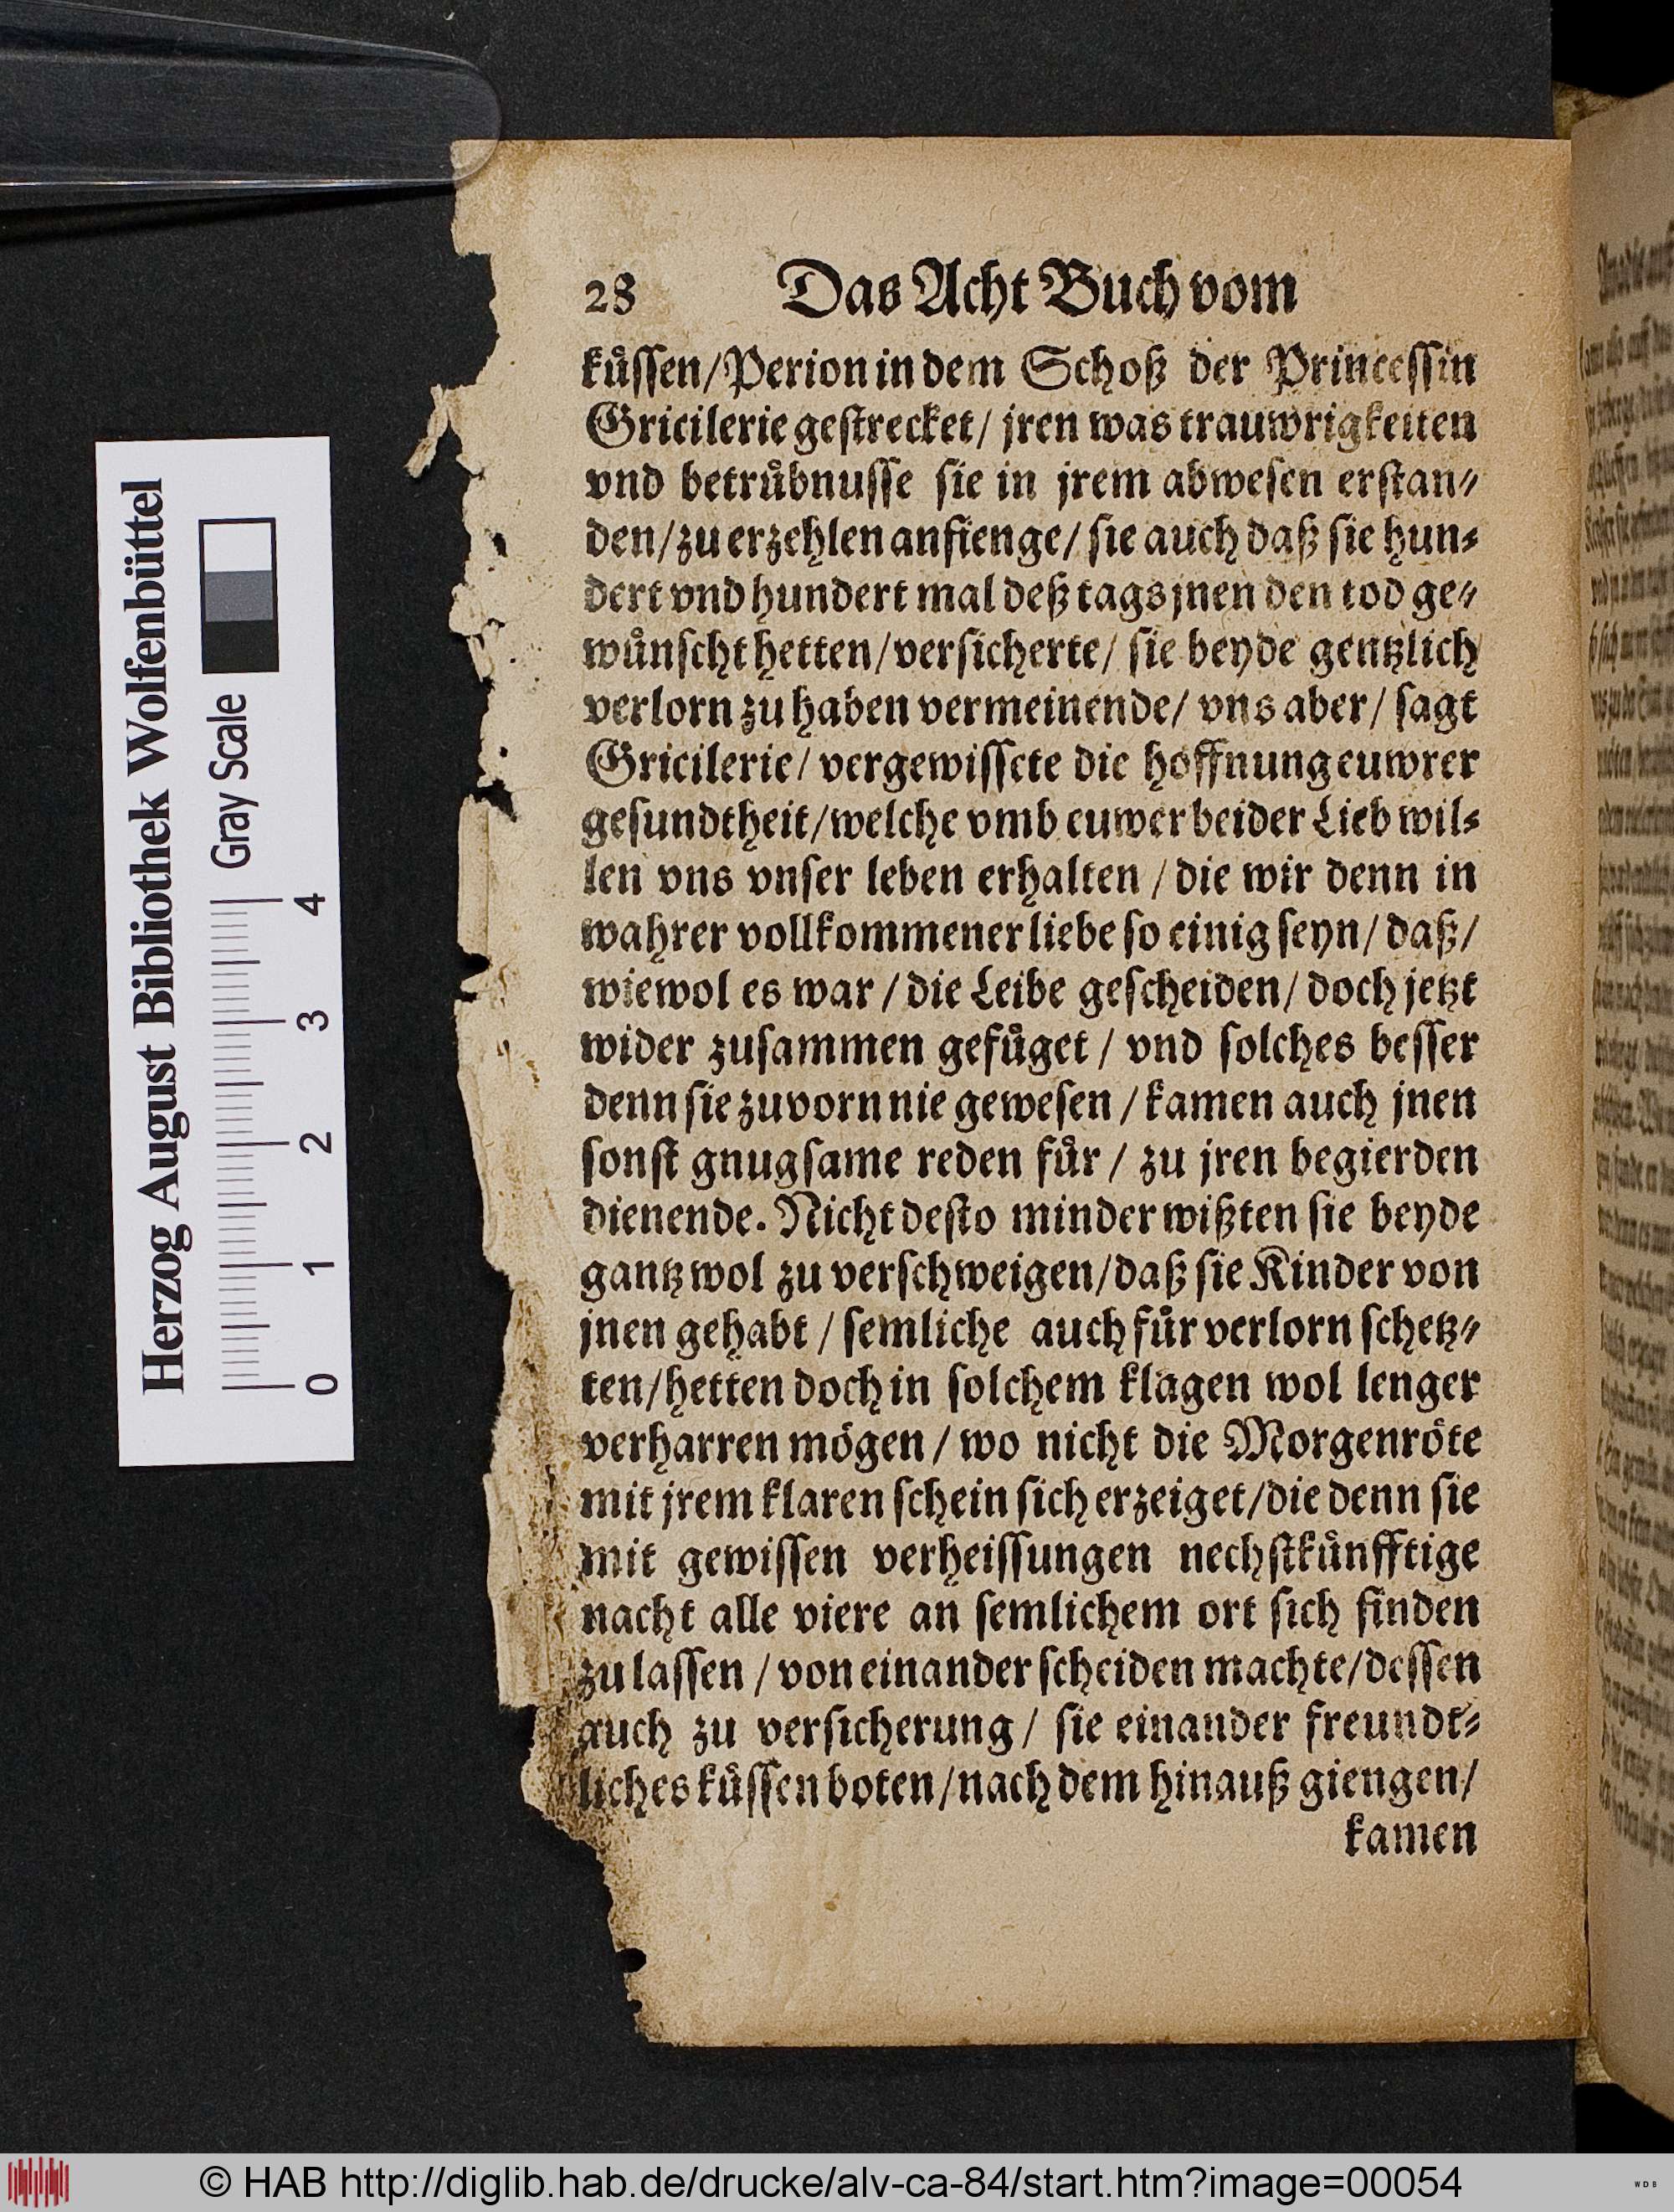 28 Das Acht Buch vom
kuͤſſen/Perion in dem Schoß der Princeſſin
Gricilerie geſtrecket/ jren was trauwrigkeiten
vnd betruͤbnuſſe ſie in jrem abweſen erſtan⸗
den/zu erzehlen anfienge/ ſie auch daß ſie hun⸗
dert vnd hundert mal deß tags jnen den tod ge⸗
wuͤnſcht hetten/verſicherte/ ſie beyde gentzlich
verlorn zu haben vermeinende/ vns aber/ ſagt
Gricilerie/ vergewiſſete die hoffnung euwrer
geſundtheit/welche vmb euwer beider Lieb wil⸗
len vns vnſer leben erhalten / die wir denn in
wahrer vollkommener liebe ſo einig ſeyn/ daß/
wiewol es war / die Leibe geſcheiden/ doch jetzt
wider zuſammen gefuͤget / vnd ſolches beſſer
denn ſie zuvorn nie geweſen / kamen auch jnen
ſonſt gnugſame reden fuͤr / zu jren begierden
dienende. Nicht deſto minder wißten ſie beyde
gantz wol zu verſchweigen/daß ſie Kinder von
jnen gehabt / ſemliche auch fuͤr verlorn ſchetz⸗
ten/hetten doch in ſolchem klagen wol lenger
verharren moͤgen / wo nicht die Morgenroͤte
mit jrem klaren ſchein ſich erzeiget/die denn ſie
mit gewiſſen verheiſſungen nechſtkuͤnfftige
nacht alle viere an ſemlichem ort ſich finden
zu laſſen / von einander ſcheiden machte/deſſen
auch zu verſicherung / ſie einander freundt⸗
liches kuͤſſen boten/nach dem hinauß giengen/
kamen
Herzog August Bibliothek Wolfenbüttel
Gray Scale
0 1 2 3 4
© HAB http://diglib.hab.de/drucke/alv-ca-84/start.htm?image=00054
WDB